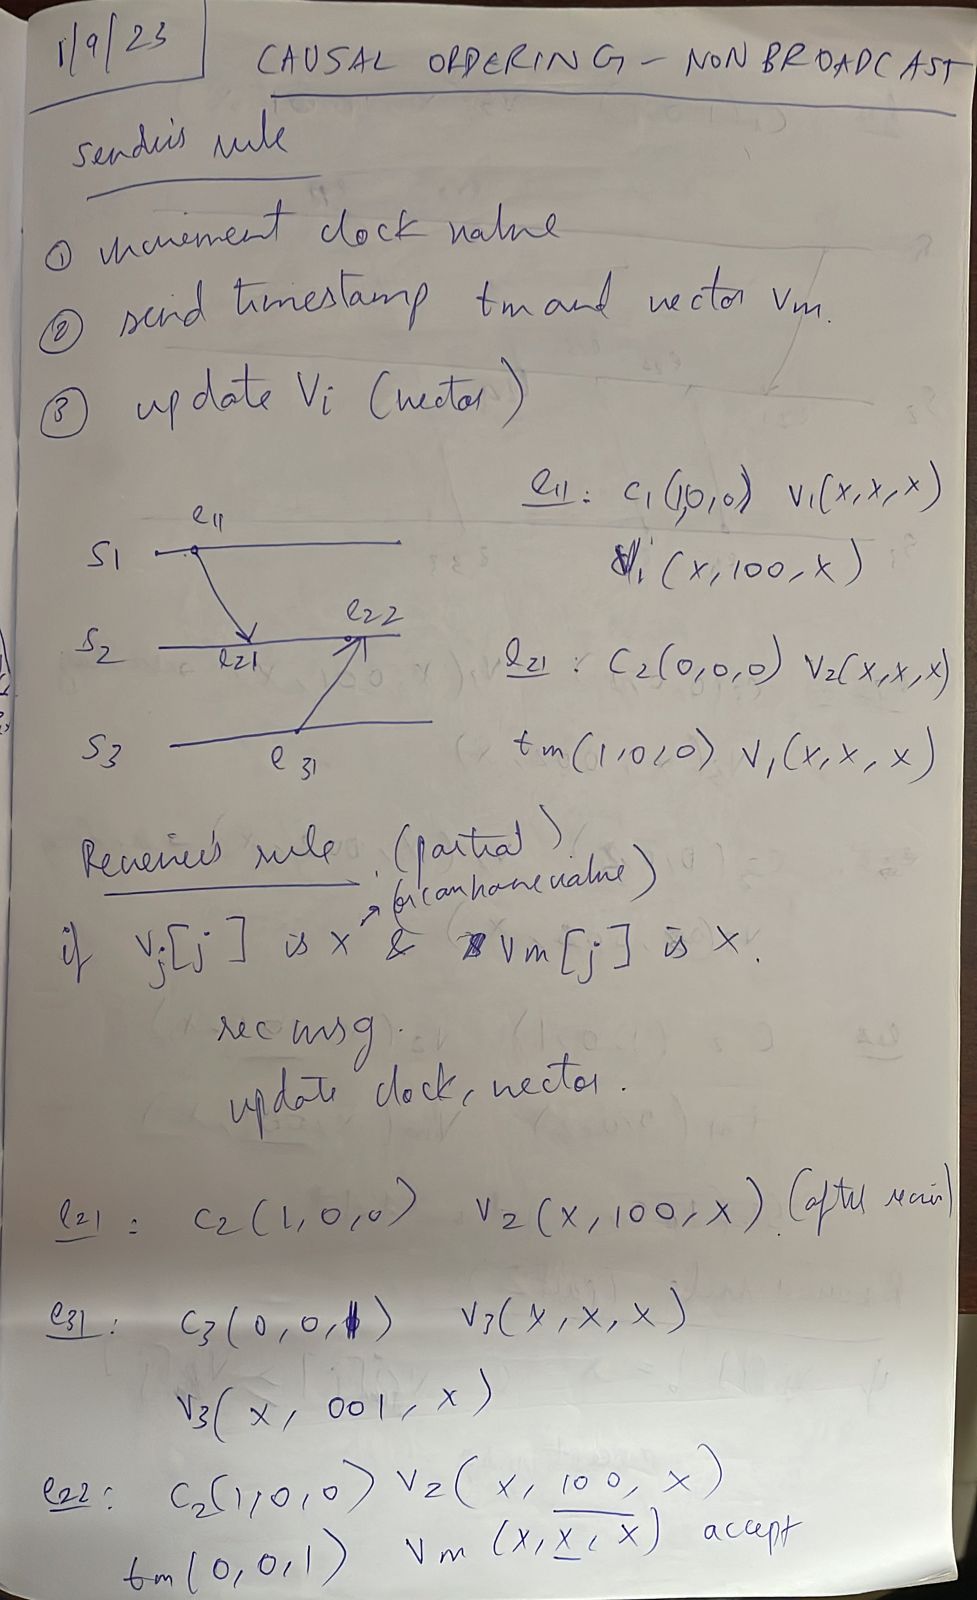 1/9/23
CAUSAL ORDERING - NON BROADCAST
Sender's rule
① increment clock value
② send timestamp tm and vector Vm.
③ update Vi (vector)
e11: C1(1,0,0) V1(x,x,x)
Vi(x,100,x)
S1 e11
S2 e21 e22
S3 e31
e21: C2(0,0,0) V2(x,x,x)
tm(1,0,0) V1(x,x,x)
Receiver's rule. (partial)
(or can have value)
if Vj[j] is x & Vm[j] is x.
rec msg.
update clock, vector.
e21: C2(1,0,0) V2(x,100,x). (after
e31: C3(0,0,1) V3(x,x,x)
V3(x,001,x)
e22: C2(1,0,0) V2(x,100,x)
tm(0,0,1) Vm(x,x,x) accept